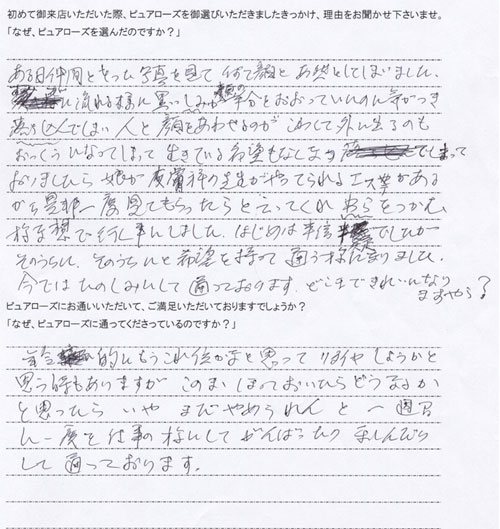 初めて御来店いただいた際、ピュアローズを御選びいただきましたきっかけ、理由をお聞かせ下さいませ。
「なぜ、ピュアローズを選んだのですか？」
ある日仲間ととった写真を見て 何て顔と あ然としてしまいました。
に流れる様に黒いしみが 半分をおおっていたのに気がつき
落ち込んでしまい 人と顔をあわせるのが こわくて外に出るのも
おっくうになってしまって 生きている希望もなしなって
おりましたら 娘が皮膚科の先生がやってられるエステがある
から是非一度見てもらったらと云ってくれ わらをつかむ
様な想で行く事にしました。はじめは半信半疑でしたが
そのうちに、そのうちにと希望を持って通う様になりました。
今ではたのしみにして通っております。どこまできれいになり
ますやら？
ピュアローズにお通いいただいて、ご満足いただいておりますでしょうか？
「なぜ、ピュアローズに通ってくださっているのですか？」
年令的にもうこれ位かなと思って リタイヤしようかと
思う時もありますが このままほっておいたらどうなるか
と思ったら いや まだやめられん と 一週間
に一度を仕事の様にして がんばったり 楽しんだり
して通っております。